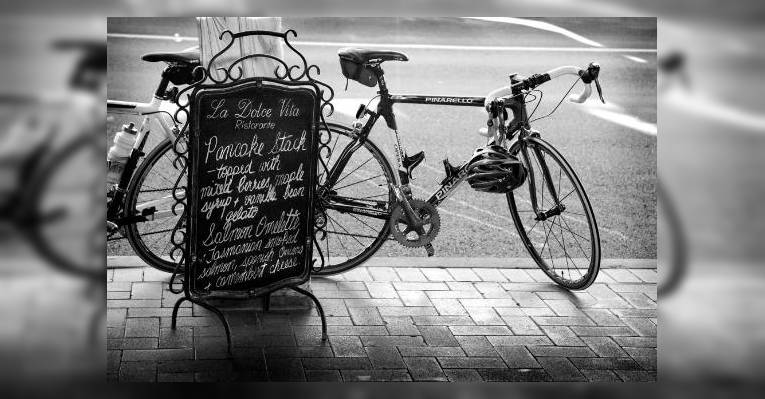 La Dolce Vita
Ristorante
Pancake Stack
topped with
mixed berries, maple
syrup + vanilla bean
gelato
Salmon Omelette
Tasmanian smoked
salmon, spanish onions
+ camembert cheese
PINARELLO